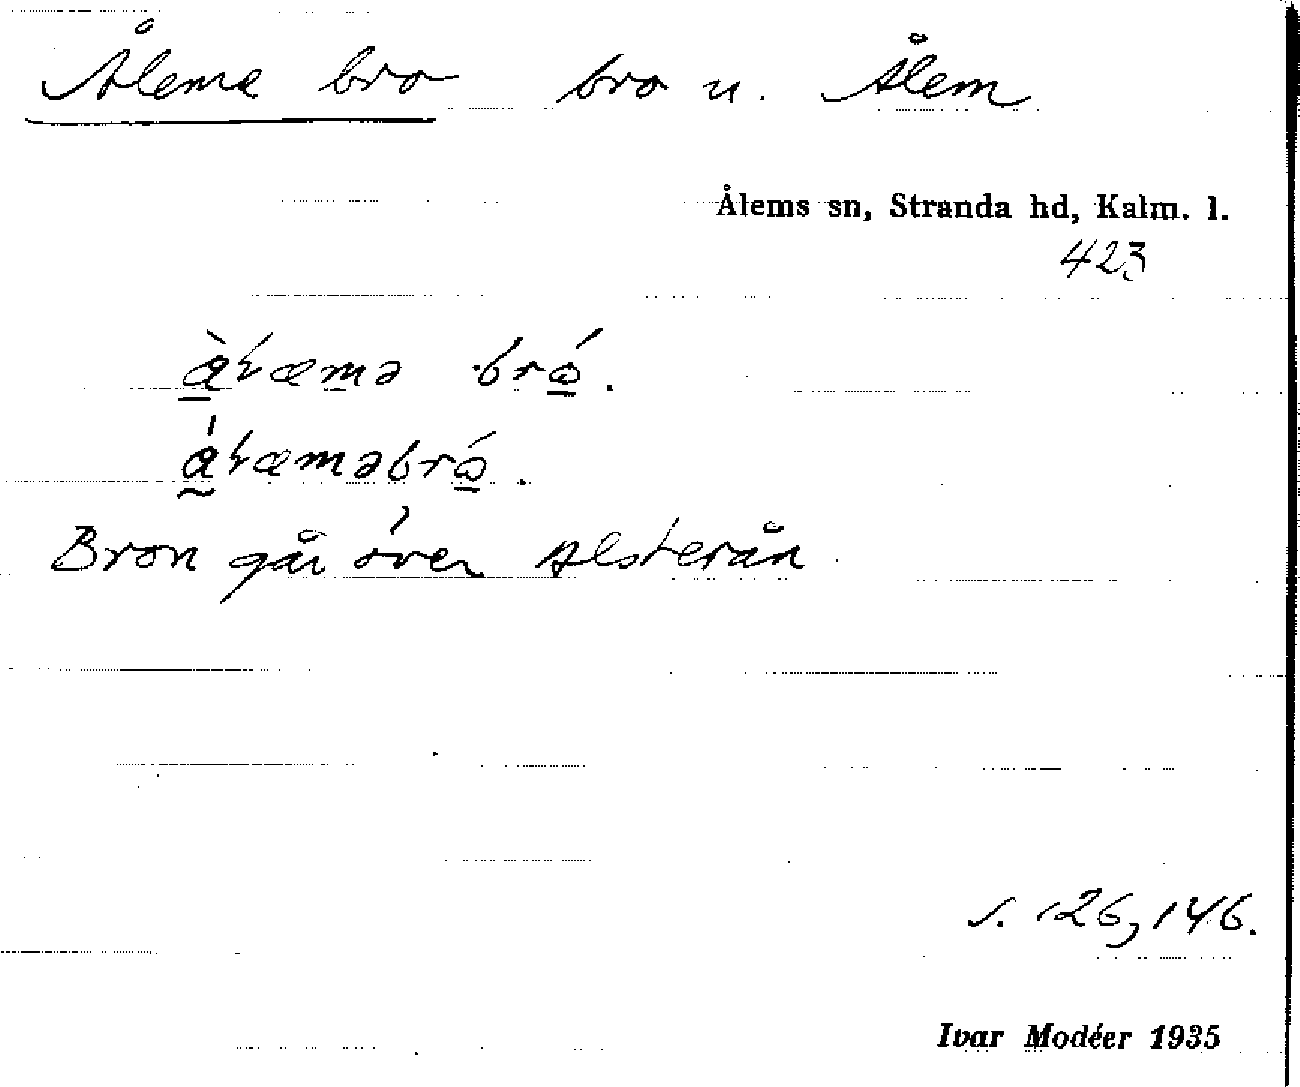 Ålema bro bro n. Ålem
Ålems sn, Stranda hd, Kalm. l.
423
Bron går över Alsterån
s. 126, 146.
Ivar Modéer 1935